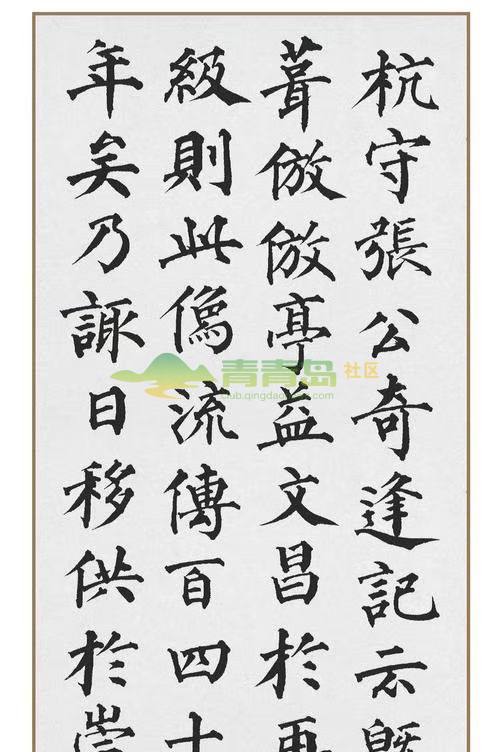 杭守張公奇逢記云既
葺倣倣亭益文昌於再
級則此像流傳百四十
年矣乃諏日移供於崇
青青岛社区